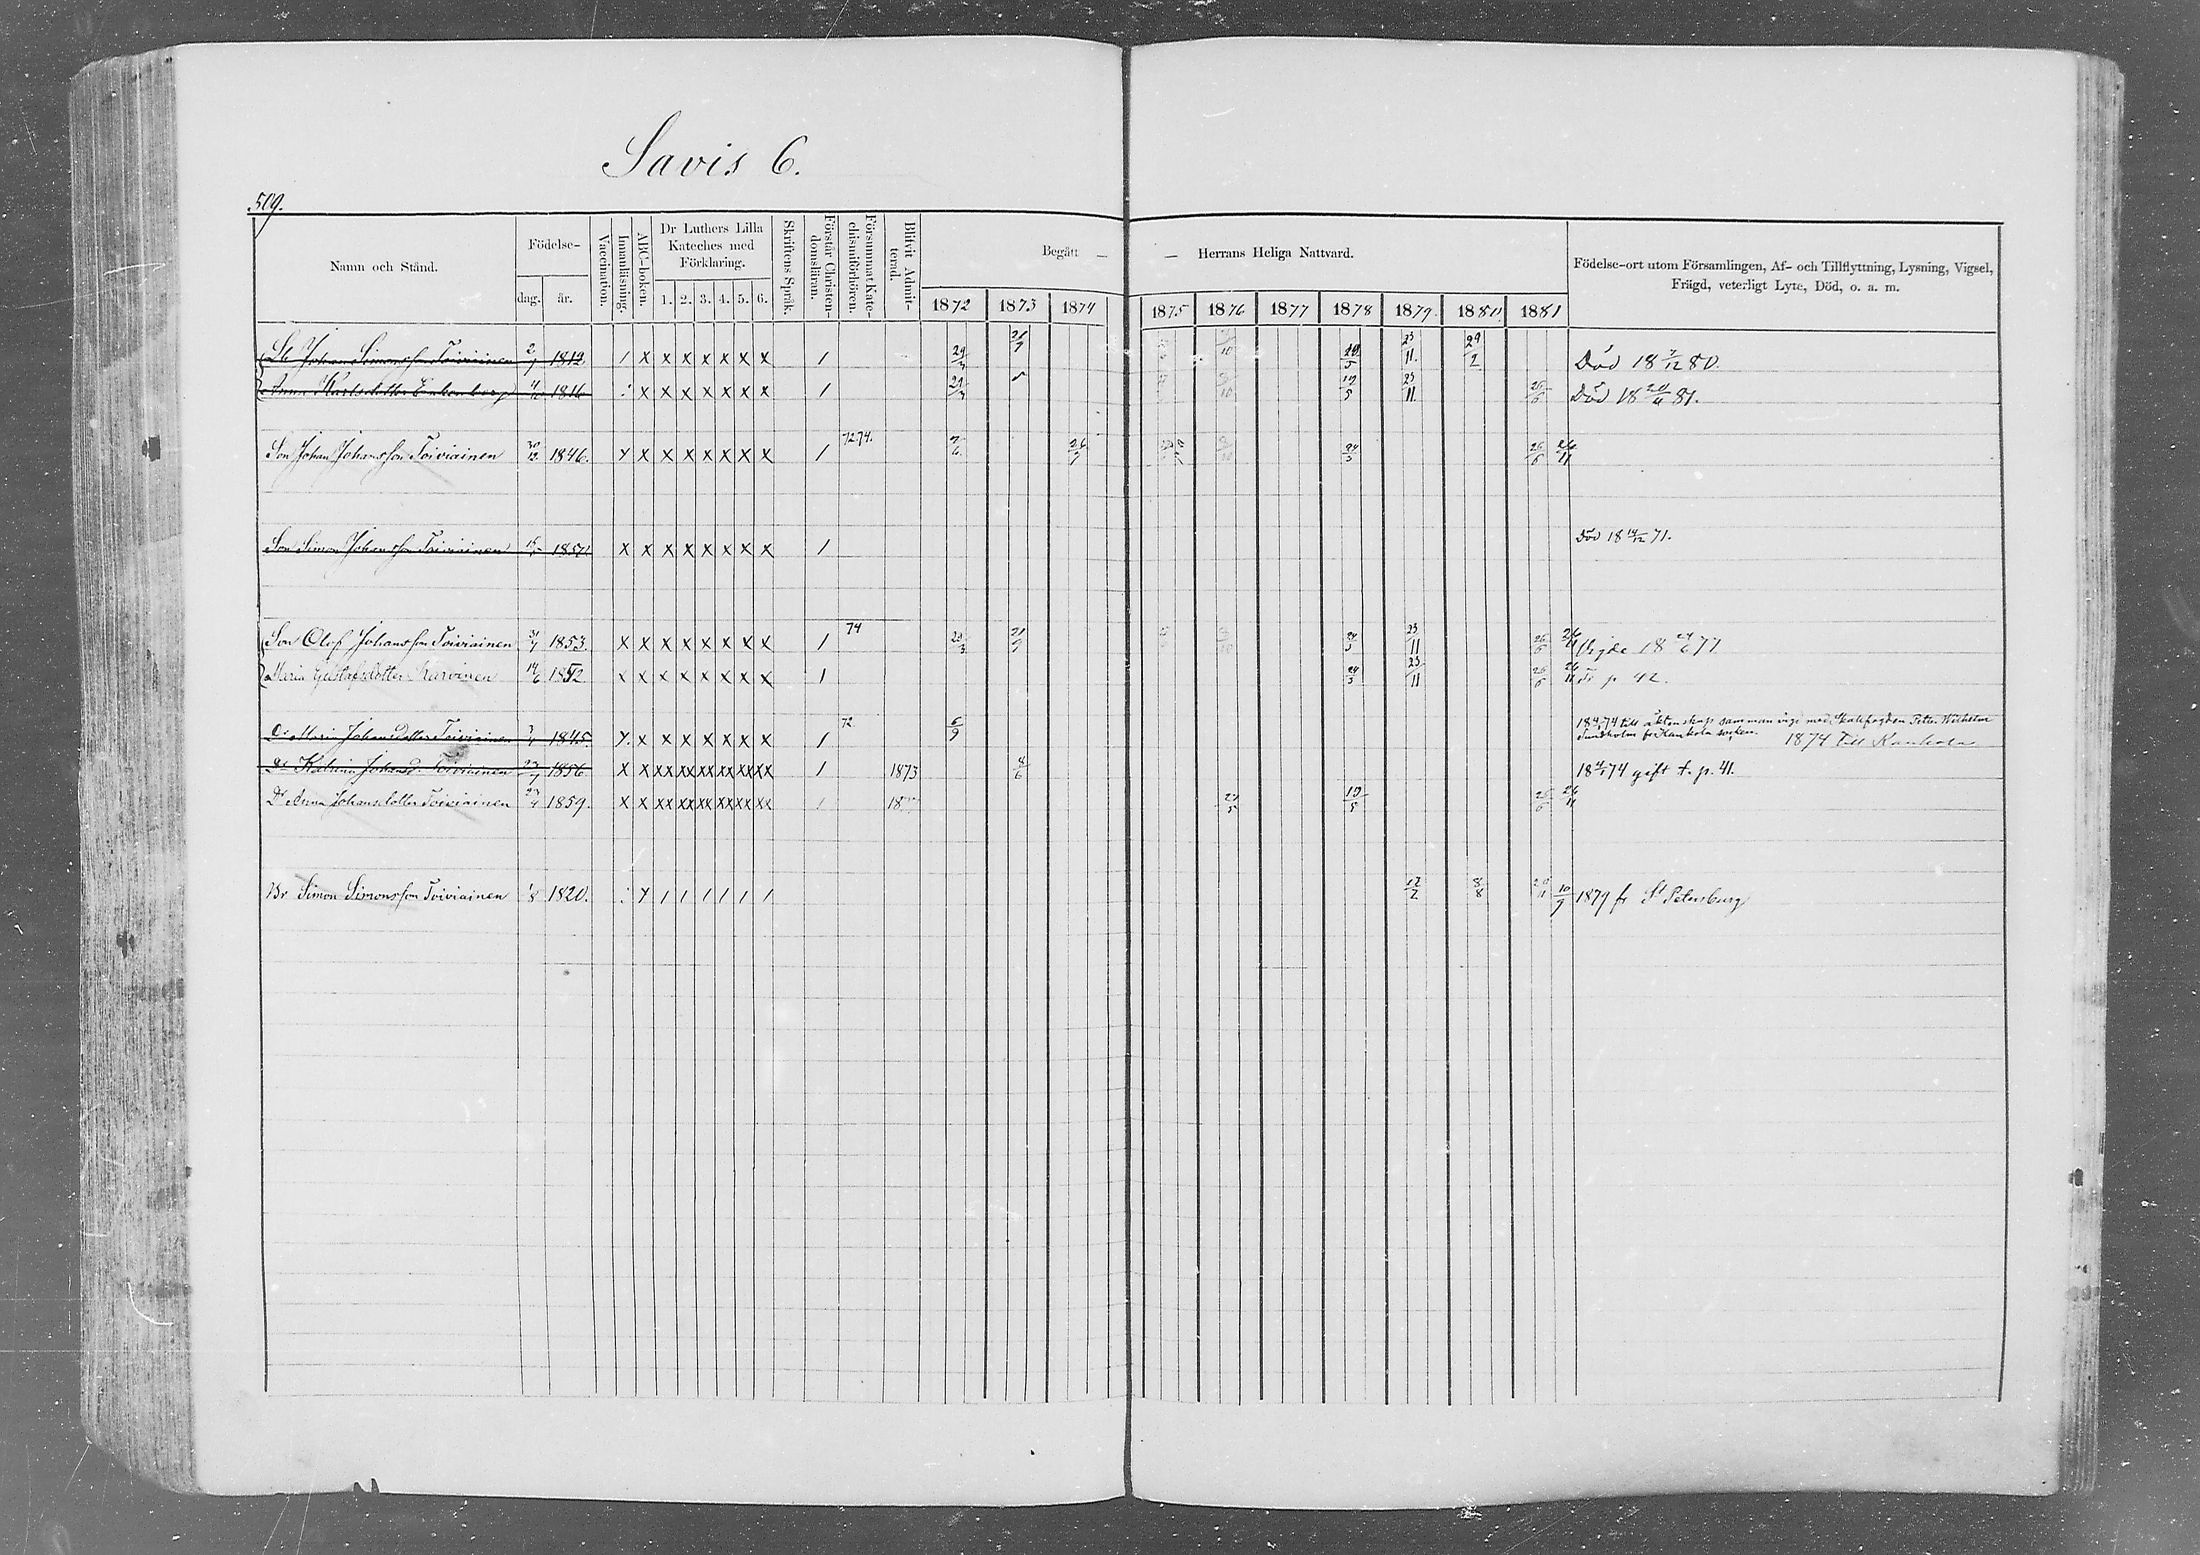 Savis 6.
509.
Namn och Stånd.
Födelse-
dag. år.
Vaccination.
Innanläsning.
ABC-boken.
Dr Luthers Lilla Kateches med Förklaring.
1. 2. 3. 4. 5. 6.
Skriftens Språk.
Förstår Christendomsläran.
Försummat Katechismiförhören.
Blifvit Admitterad.
Begått — — Herrans Heliga Nattvard.
1872 1873 1874 1875 1876 1877 1878 1879. 1880 1881
Födelse-ort utom Församlingen, Af- och Tillflyttning, Lysning, Vigsel,
Frägd, veterligt Lyte, Död, o. a. m.
Johan Simonsson Toiviainen 1812 / x x x x x x x / 29/3 21/9 19/5 23/11. 29/2 Död 18 7/12 80.
Anna Karlsdotter 1816 x x x x x x x / 19/5 23/11. 26/6 Död 18 81.
Son Johan Johansson Toiviainen 30/12 1846. x x x x x x x / 72.74. 24/5 26/6 26/11
Son Simon Johansson Toiviainen 1850 x x x x x x x x / Död 18 14/12 71.
Son Olof Johansson Toiviainen 1853. x x x x x x x x / 74 21/9 24/5 23/11 26/6 26/11 Vigde 18 24/6 77
Maria Gustafsdotter Karvinen 14/6 1852 x x x x x x x x / 24/5 23/11 26/6 26/11 Fr p 42.
Dr Maria Johansdotter Toiviainen 1845. x x x x x x x / 72 6/9 74 till äktenskap sammanvigd med Skallfogden Petter Wilhelm
Sundholm fr Kaukola socken. 1874 Till Kaukola
Dr Katrina Johansd. Toiviainen 1856 x x xx xx xx xx xx xx / 1873 8/6 18 74 gift t. p. 41.
Dr Anna Johansdotter Toiviainen 1859. x x xx xx xx xx xx xx / 19/5 26/6 26/11
Br Simon Simonsson Toiviainen 1/8 1820. / / / / / / 8/8 10/9 1879 fr St Petersburg